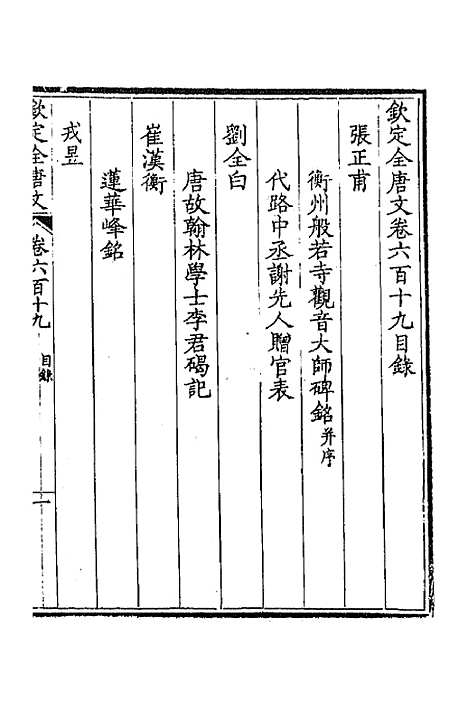 欽定全唐文卷六百十九目錄
張正甫
衡州般若寺觀音大師碑銘并序
代路中丞謝先人贈官表
劉全白
唐故翰林學士李君碣記
崔漢衡
蓮華峰銘
戎昱
欽定全唐文 卷六百十九 目錄 一